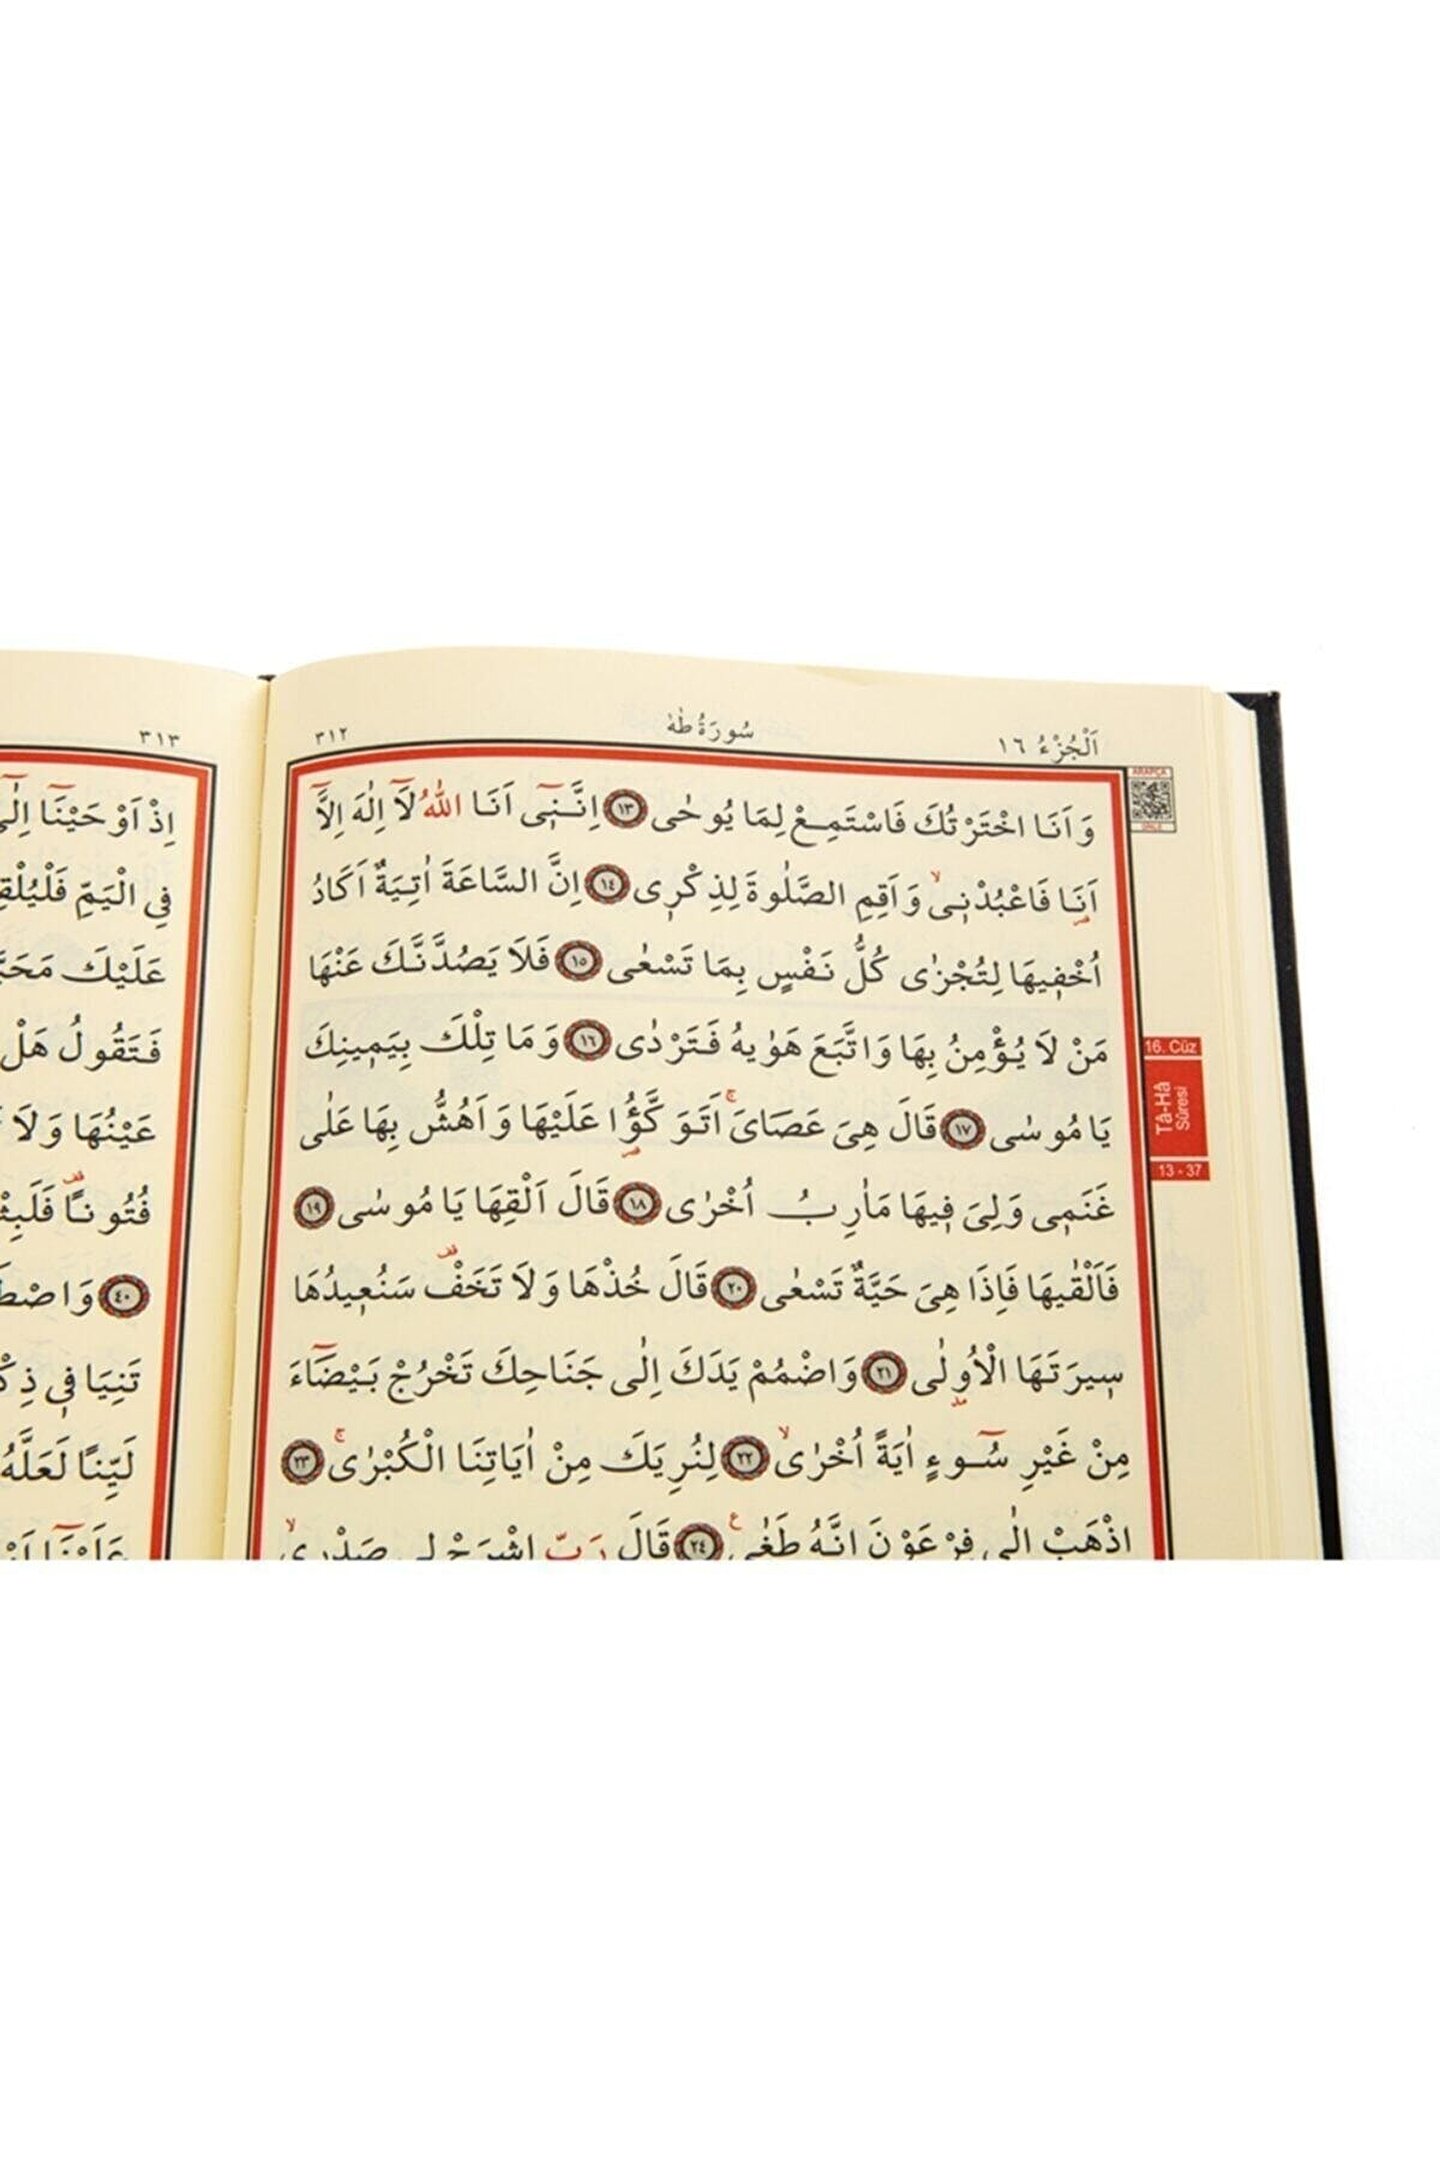 اَلْجُزْءُ ١٦
سُورَةُ طٰهٰ
٣١٢
وَاَنَا اخْتَرْتُكَ فَاسْتَمِعْ لِمَا يُوحٰى ﴿١٣﴾ اِنَّـنٖٓى اَنَا اللّٰهُ لَٓا اِلٰهَ اِلَّٓا
اَنَا فَاعْبُدْنٖىۙ وَاَقِمِ الصَّلٰوةَ لِذِكْرٖى ﴿١٤﴾ اِنَّ السَّاعَةَ اٰتِيَةٌ اَكَادُ
اُخْفٖيهَا لِتُجْزٰى كُلُّ نَفْسٍ بِمَا تَسْعٰى ﴿١٥﴾ فَلَا يَصُدَّنَّـكَ عَنْهَا
مَنْ لَا يُؤْمِنُ بِهَا وَاتَّبَعَ هَوٰيهُ فَتَرْدٰى ﴿١٦﴾ وَمَا تِلْكَ بِيَمٖينِكَ
يَا مُوسٰى ﴿١٧﴾ قَالَ هِىَ عَصَاىَۚ اَتَوَكَّؤُا عَلَيْهَا وَاَهُشُّ بِهَا عَلٰى
غَنَمٖى وَلِىَ فٖيهَا مَاٰرِبُ اُخْرٰى ﴿١٨﴾ قَالَ اَلْقِهَا يَا مُوسٰى ﴿١٩﴾
فَاَلْقٰيهَا فَاِذَا هِىَ حَيَّةٌ تَسْعٰى ﴿٢٠﴾ قَالَ خُذْهَا وَلَا تَخَفْ سَنُعٖيدُهَا
سٖيرَتَهَا الْاُولٰى ﴿٢١﴾ وَاضْمُمْ يَدَكَ اِلٰى جَنَاحِكَ تَخْرُجْ بَيْضَٓاءَ
مِنْ غَيْرِ سُٓوءٍ اٰيَةً اُخْرٰىۙ ﴿٢٢﴾ لِنُرِيَكَ مِنْ اٰيَاتِنَا الْكُبْرٰىۚ ﴿٢٣﴾
اِذْهَبْ اِلٰى فِرْعَوْنَ اِنَّهُ طَغٰى ﴿٢٤﴾ قَالَ رَبِّ اشْرَحْ لٖى صَدْرٖىۙ
ARAPÇA
16. Cüz
Tâ-Hâ
Sûresi
13 - 37
٣١٣
اِذْ اَوْحَيْنَٓا
فِى الْيَمِّ
عَلَيْكَ
فَتَقُولُ هَلْ
عَيْنُهَا وَلَا
فُتُونًا
﴿٤٠﴾
تَنِيَا فٖى
لَيِّنًا لَعَلَّهُ
عَلَيْنَٓا